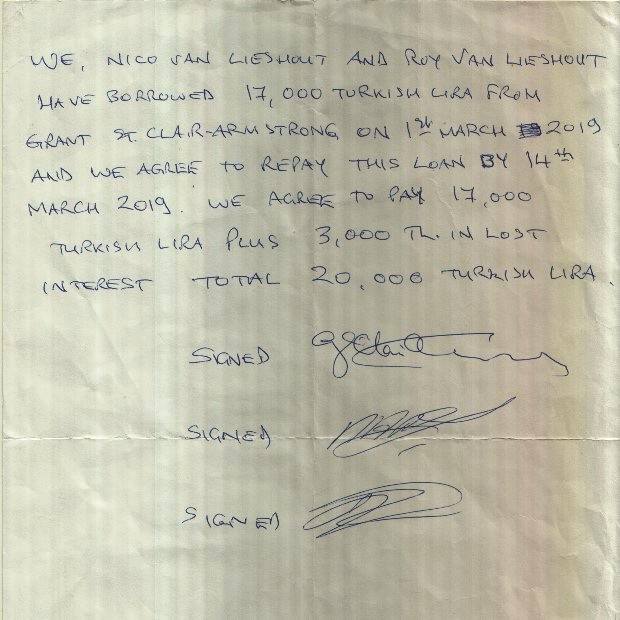 WE, NICO VAN LIESHOUT AND ROY VAN LIESHOUT
HAVE BORROWED 17,000 TURKISH LIRA FROM
GRANT ST. CLAIR-ARMSTRONG ON 1st MARCH 2019
AND WE AGREE TO REPAY THIS LOAN BY 14th
MARCH 2019. WE AGREE TO PAY 17,000
TURKISH LIRA PLUS 3,000 TL. IN LOST
INTEREST TOTAL 20,000 TURKISH LIRA.
SIGNED
SIGNED
SIGNED